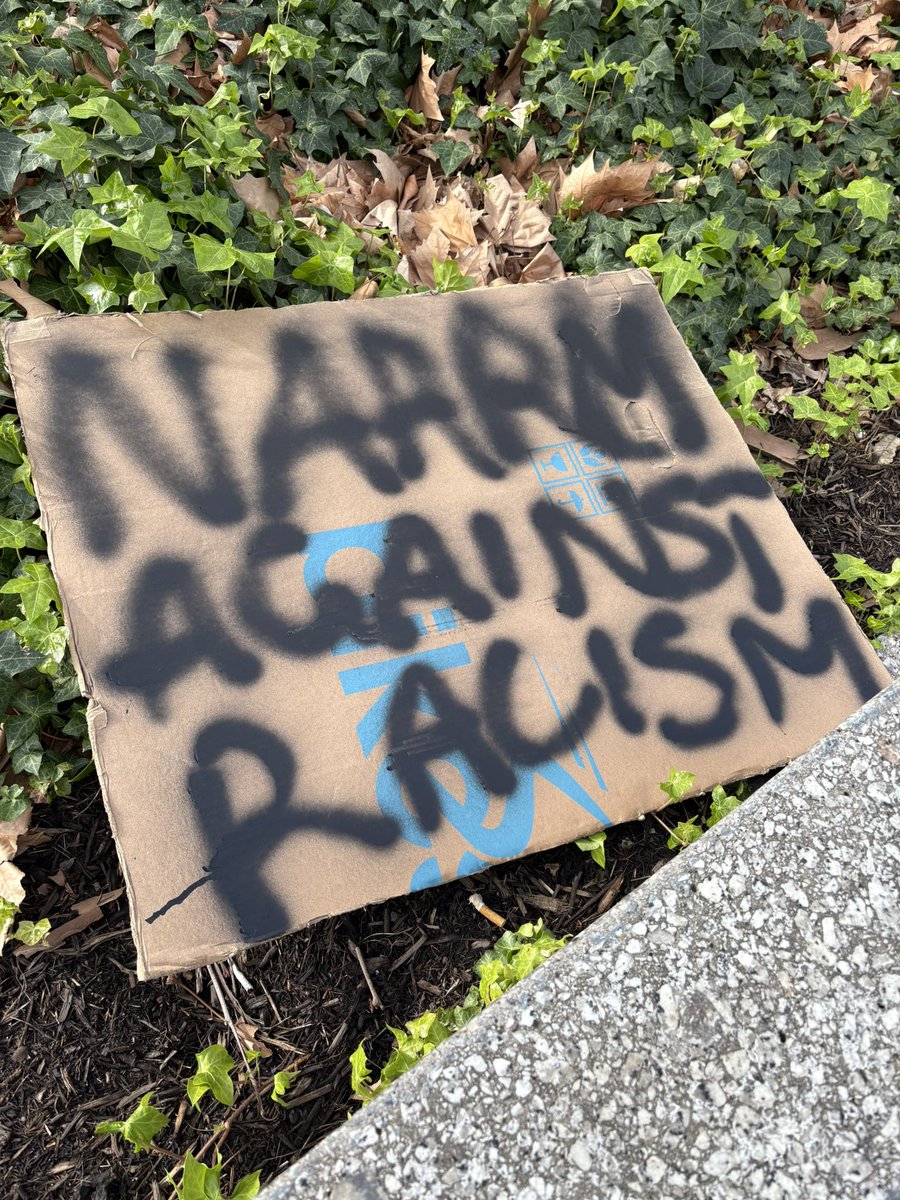 NAARM
AGAINST
RACISM